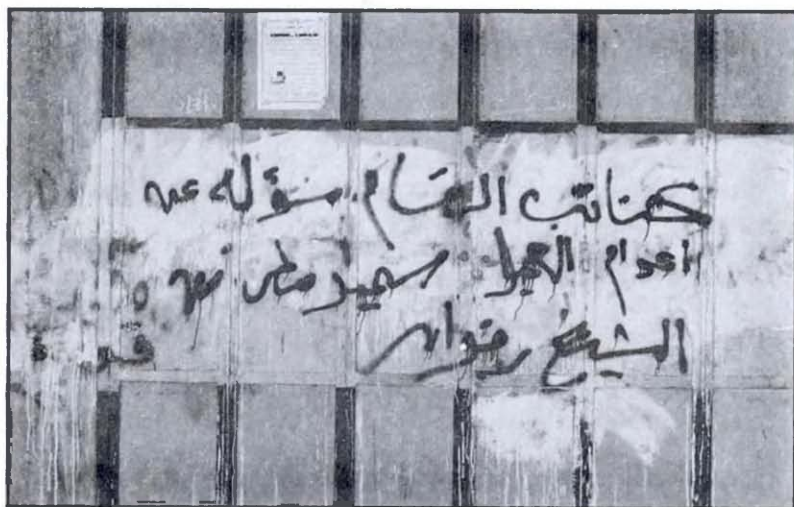 كتائب القسام مسؤوله عن
اعدام العميل سهيل مطر من
الشيخ رضوان